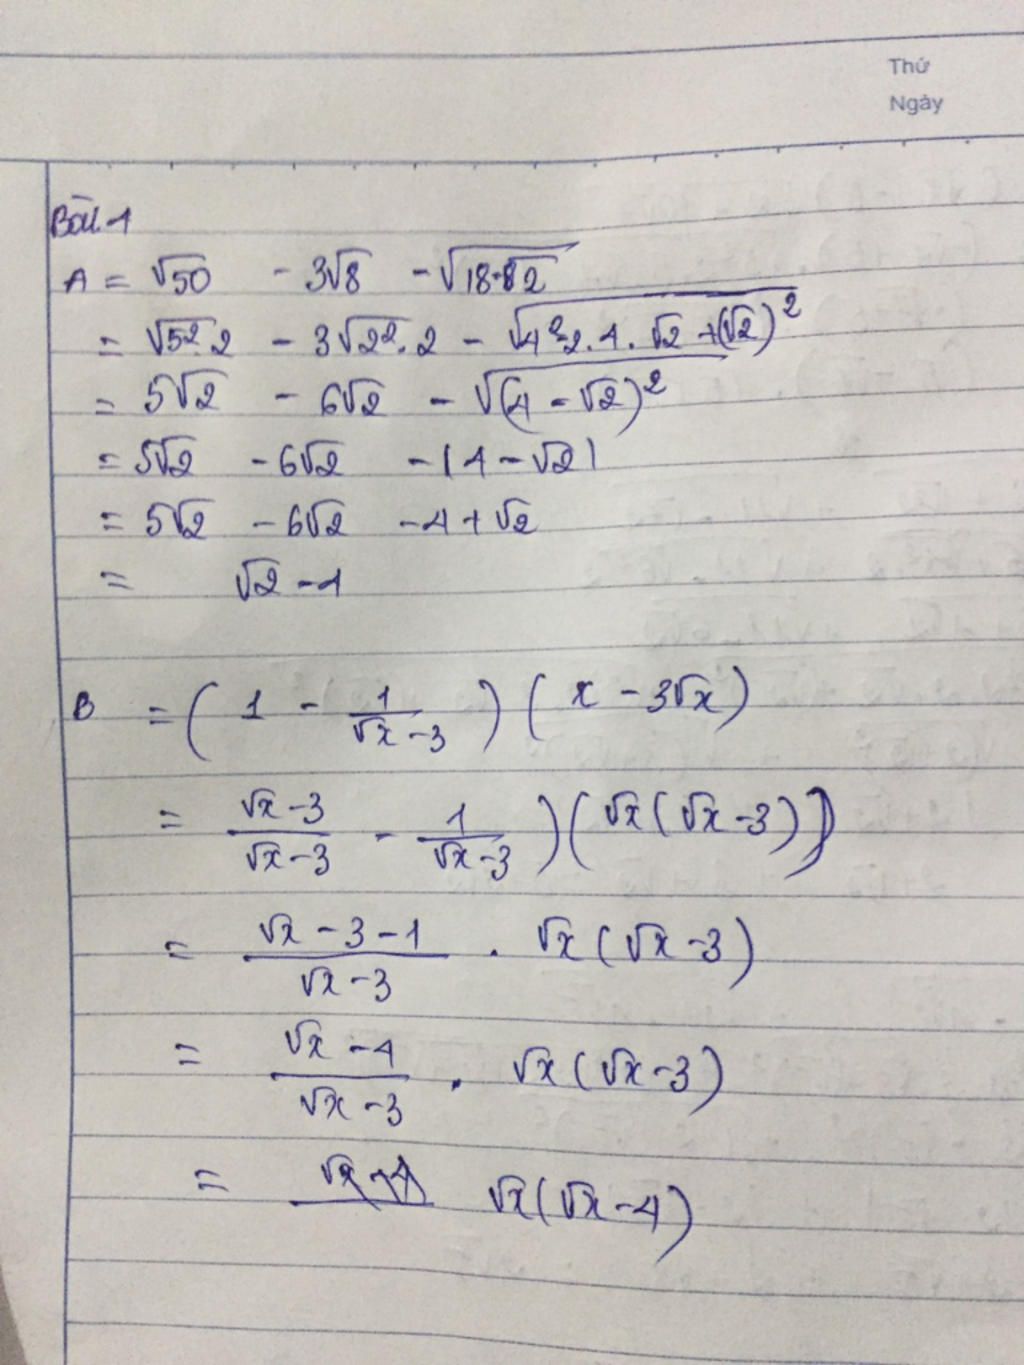 Thứ
Ngày
Bài 1
A = √50 - 3√8 - √(18-8√2)
= √(5².2) - 3√(2².2) - √(4²-2.4.√2+(√2)²)
= 5√2 - 6√2 - √((4-√2)²)
= 5√2 - 6√2 - |4-√2|
= 5√2 - 6√2 - 4 + √2
= √2 - 4
B = (1 - 1/(√x-3)) (x - 3√x)
= (√x-3)/(√x-3) - 1/(√x-3)) (√x(√x-3))
= (√x-3-1)/(√x-3) . √x(√x-3)
= (√x-4)/(√x-3) . √x(√x-3)
= √x(√x-4)